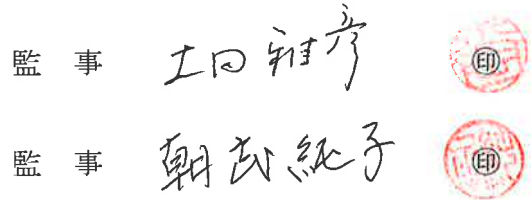 監事 土田雅彦 ㊞
監事 朝武純子 ㊞